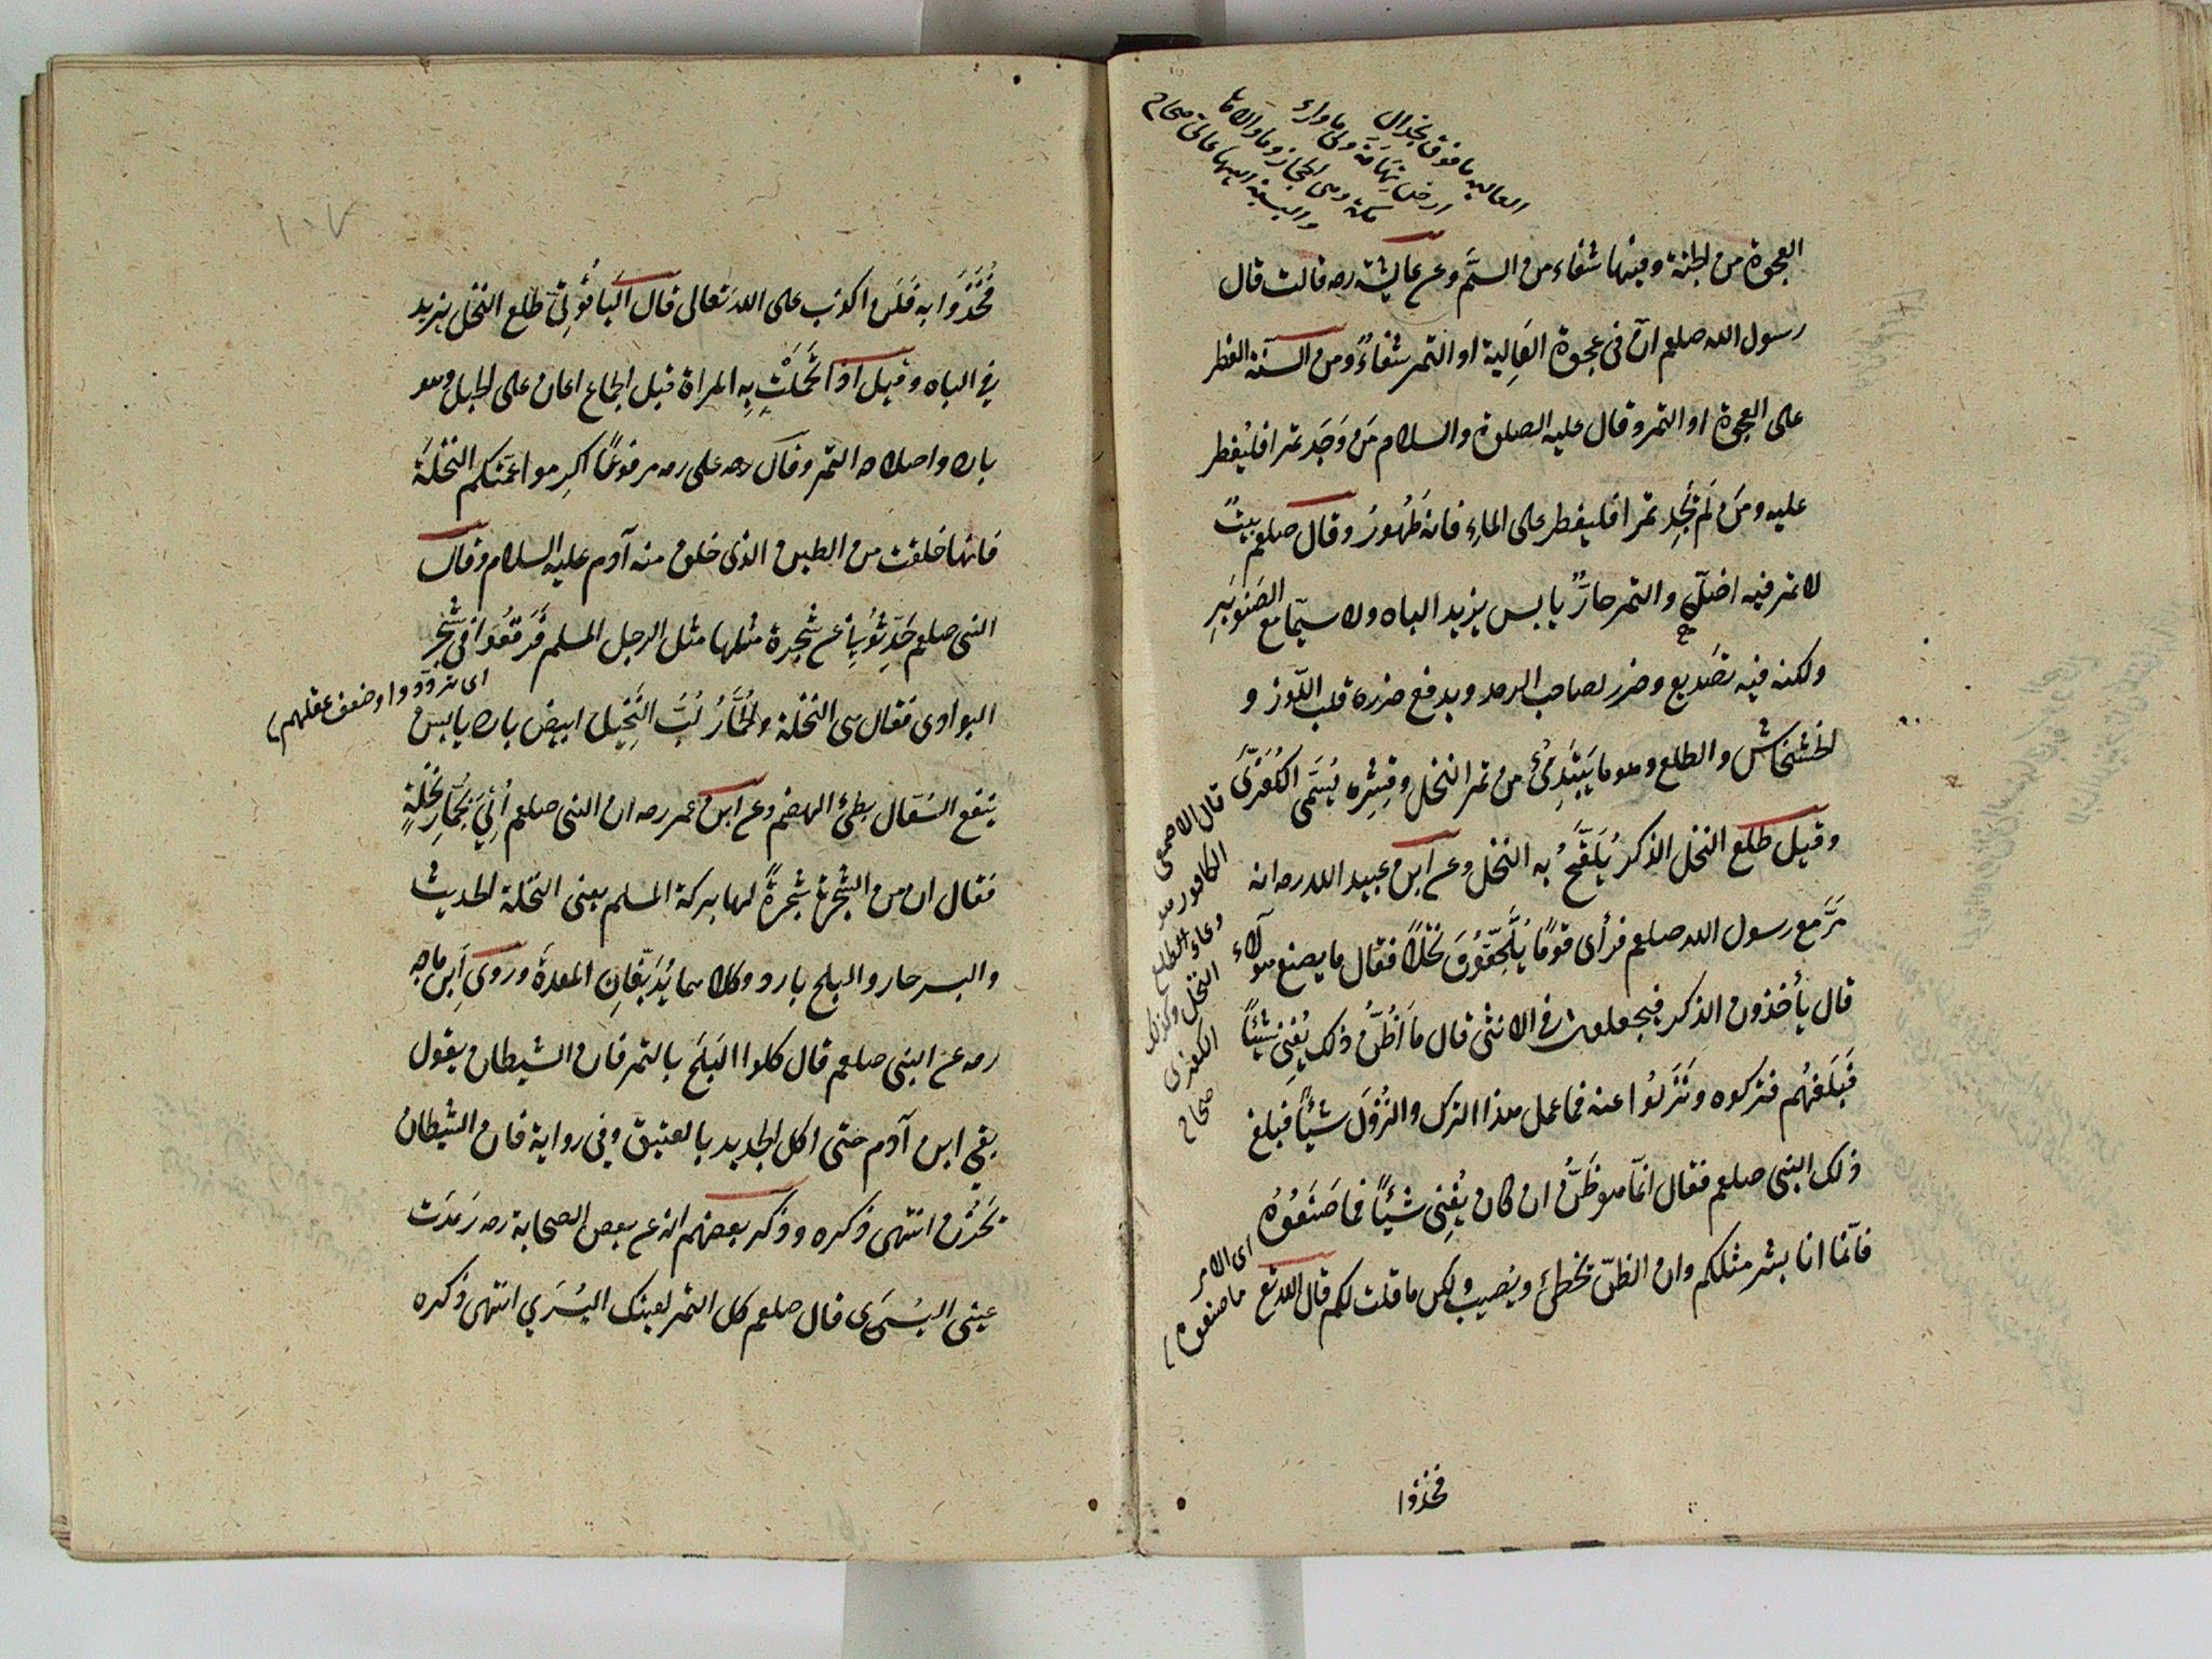 العاليه ما فوق نجد الى
ارض تهامة والى ما وراء
مكة وهى الحجاز وما والاها
والنسبة اليها عالىّ صحاح
العجوة من الجنة وفيها شفاء من السَّم وعن عايشة رضه قالت قال
رسول الله صلعم انّ فى عجوة العَالِية او التمر شفاءً ومن السنة الفطر
على العجوة او التمر وقال عليه الصلوة والسلام مَن وَجَد تمرا فليُفطر
عليه ومَن لَم يَجِد تمرا فليفطر على الماءِ فانه طَهُورٌ وقال صلعم بيتٌ
لا تمر فيه اهله والتمر حارٌّ يابس يزيد الباه ولا سيّما مع الصَنوبَرِ
ولكنه فيه تصَديع وضرر لصاحب الرمد ويدفع ضرره قلب اللّوز و
الخشخاش والطلع وهو ما يَبتَدِئُ من ثمر النخل وقِشره يُسَمَّى الكُفَرّى
وقيل طلع النخل الذكرُ يُلَقَّحُ به النخل وعن ابن عبيد الله رضه انه
مَرَّ مع رسول الله صلعم فرأى قومًا يُلَقِّحُونَ نخلاً فقال ما يصنع هولآء
قال يأخذون الذكر فيجعلونه فى الانثى قال مَا أظُنُّ ذلك يُغنِى شيئًا
فَبَلغهُم فتركوه ونَزَلُوا عنه فما عمل هذا الترك والنزُولَ شيئًا فبلغ
ذلك النبى صلعم فقال انّما هو ظَنٌّ ان كان يُغنِى شيئًا فاصنَعُوُهُ
فانّما انا بشر مثلكم وان الظنّ يخطئ ويُصيب ولكن ما قلت لكم قال الله تع
قال الاصمعى
الكافور هو
وعاء الطلع
النخل وكذلك
الكفرى
صحاح
اى الامر
ما صنعوه
فخذوا
١٠٧
فَخُذُوا به فَلَن اكذب على الله تعالى قال البافُولِىّ طلع النخل يزيد
فى الباه وقيل اذا تَحَمَّلَتِ بِهِ المراة قبل الجماع اعان على الحبل وهو
بارد واصلاحه التمر وقال وعن على رضه مرفوعًا اكرِموا عمَّتكم النخلةَ
فانها خلقت من الطين الذى خلق منه آدم عليه السلام وقال
النبى صلعم حَدِّثُونِى عن شجرة مثلها مثل الرجل المسلم فَوَقعُوا فى شجر
اى تردّدوا وضعف عقلهم
البوادى فقال هى النخلة والجُمَّارُ لُبُّ النَّخِيل ابيض بارد يابس
ينفع السُعَال بطئ الهضم وعن ابن عمر رضه ان النبى صلعم أُتِىَ بجُمَّارِ نخلةٍ
فقال ان من الشجرة شجرةً لها بركة المسلم يعنى النخلة الحديث
والبسر حار والبلح بارد وكلاهما يُدبّغانِ المعدة وروى ابن ماجه
رضه عن النبى صلعم قال كلوا البَلَحَ بالتمر فان الشيطان يقول
بقى ابن آدم حتى اكل الجديد بالعتيق وفى رواية فان الشيطان
يَحزُن انتهى ذكره وذكر بعضهم انه عن بعض الصحابة رضه رَمَدَت
عينى اليسرى فقال صلعم كل التمر بعينك اليُسْرَى انتهى ذكره